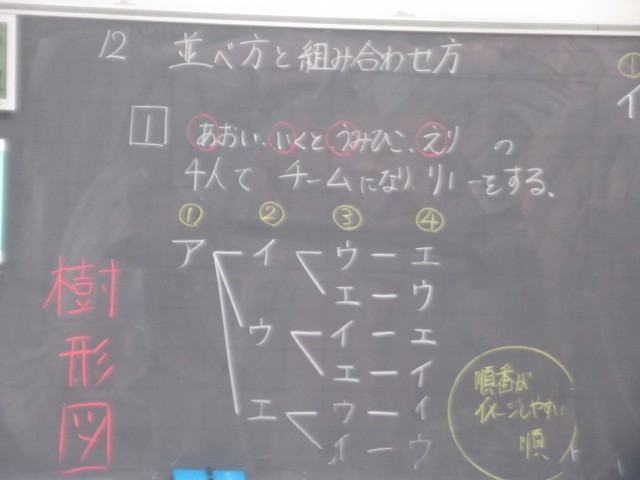 12 並べ方と組み合わせ方
1 あおい、いくと、うみひこ、えり の
4人で チームになり リレーをする。
① ② ③ ④
ア イ ウ ー エ
エ ー ウ
ウ イ ー エ
エ ー イ
エ ウ ー イ
イ ー ウ
樹形図
順番が
イメージしやすい
順
①
イ